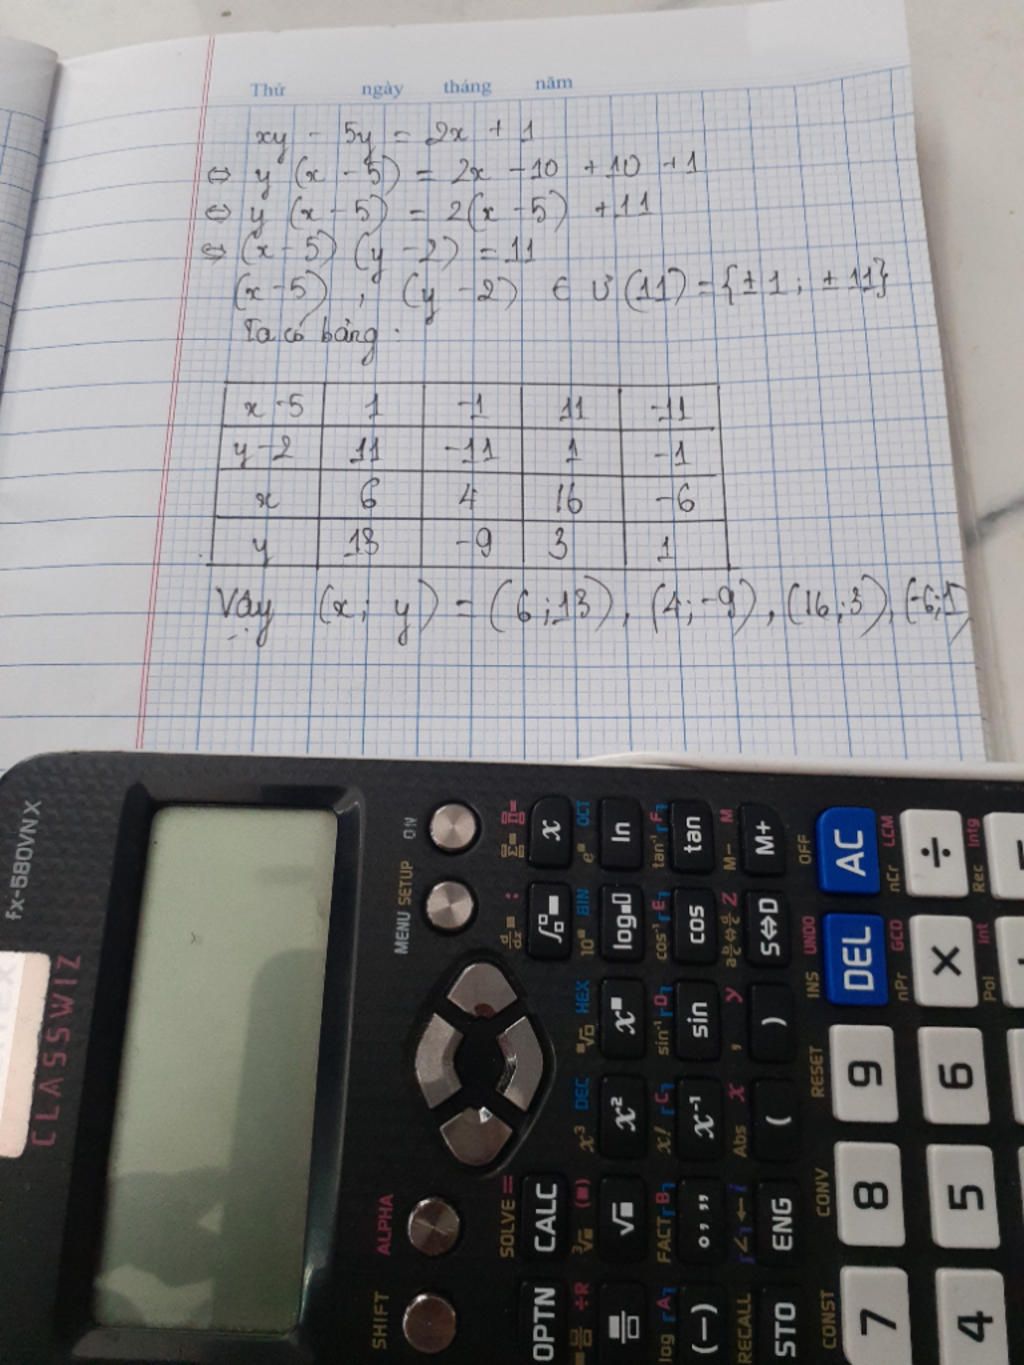 Thứ ngày tháng năm
xy - 5y = 2x + 1
⇔ y (x - 5) = 2x - 10 + 10 + 1
⇔ y (x - 5) = 2(x - 5) + 11
⇔ (x - 5) (y - 2) = 11
(x - 5) , (y - 2) ∈ Ư(11) = {± 1 ; ± 11}
Ta có bảng :
x - 5 1 -1 11 -11
y - 2 11 -11 1 -1
x 6 4 16 -6
y 13 -9 3 1
Vậy (x; y) = (6;13), (4;-9), (16;3), (-6;1)
fx-580VN X
CLASSWIZ
SHIFT ALPHA MENU SETUP ON
SOLVE = d/dx : Σ Π
OPTN CALC ∫ x
÷R ³√ (■) x³ DEC ■√ HEX 10■ BIN e■ OCT
√■ x² x■ log■□ ln
log A FACT B x! C sin⁻¹ D cos⁻¹ E tan⁻¹ F
(−) ° ’ ” x⁻¹ sin cos tan
RECALL ∠ ← i Abs x , y a b/c ⇔ d/c Z M− M
STO ENG ( ) S⇔D M+
CONST CONV RESET INS UNDO OFF
7 8 9 DEL AC
nPr GCD nCr LCM
4 5 6 × ÷
Pol Int Rec Intg